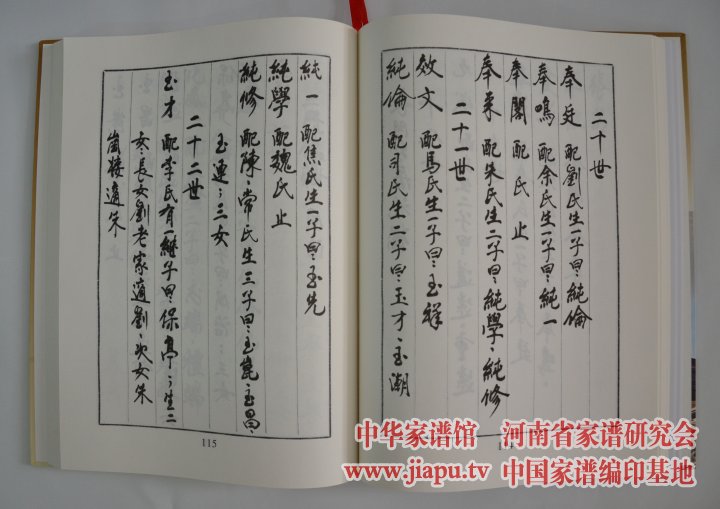 二十世
奉廷 配劉氏生一子曰:純倫
奉鳴 配余氏生一子曰:純一
奉閣 配 氏 止
奉來 配朱氏生二子曰:純學:純修
二十一世
效文 配馬氏生一子曰:玉祥
純倫 配司氏生二子曰:玉才:玉潮
純一 配焦氏生一子曰:玉先
純學 配魏氏止
純修 配陳:常氏生三子曰:玉崑:玉昌:
玉運:三女
二十二世
玉才 配李氏有一継子曰:保亭:生二
女:長女劉老家適劉:次女朱
崗楼適朱
115
中华家谱馆 河南省家谱研究会
www.jiapu.tv 中国家谱编印基地